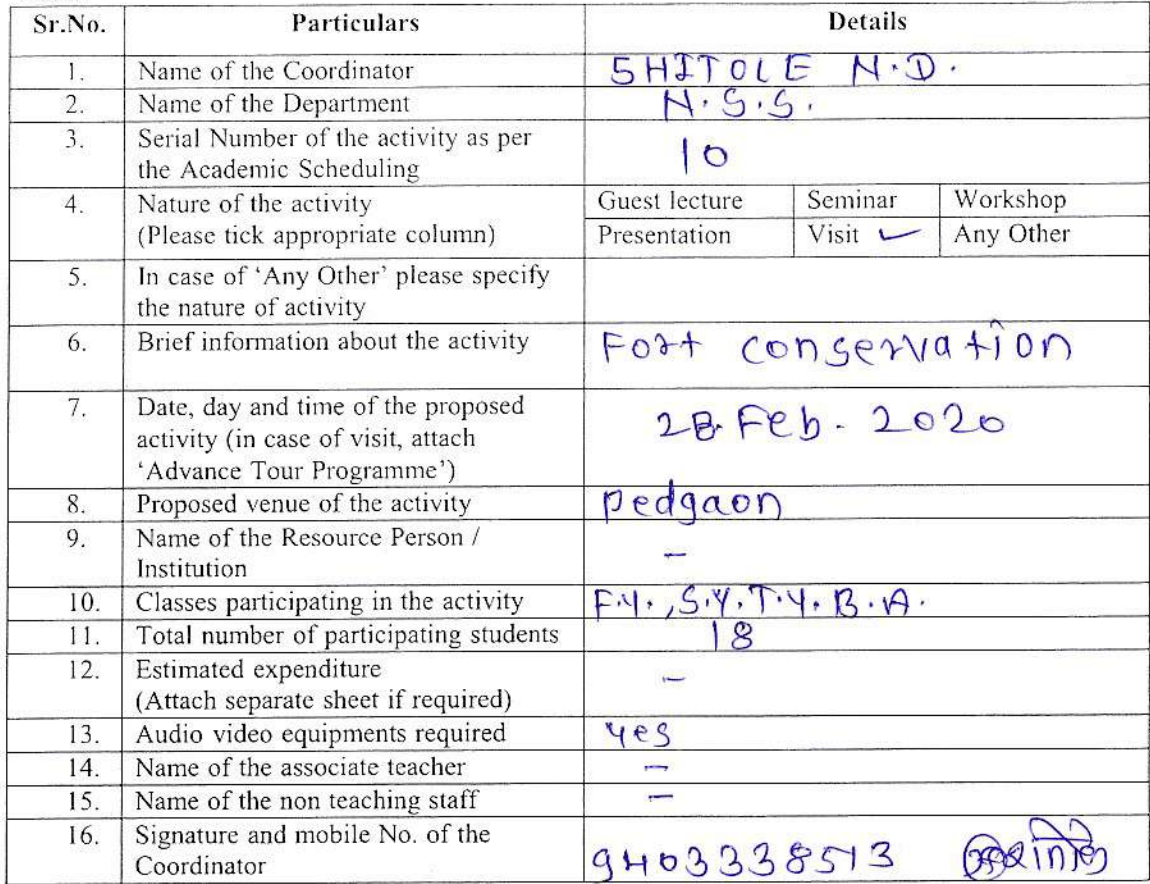 Sr.No. Particulars Details
1. Name of the Coordinator SHITOLE N.D.
2. Name of the Department N.S.S.
3. Serial Number of the activity as per
the Academic Scheduling 10
4. Nature of the activity Guest lecture Seminar Workshop
(Please tick appropriate column) Presentation Visit ✓ Any Other
5. In case of 'Any Other' please specify
the nature of activity
6. Brief information about the activity Fort conservation
7. Date, day and time of the proposed
activity (in case of visit, attach 28 Feb. 2020
'Advance Tour Programme')
8. Proposed venue of the activity pedgaon
9. Name of the Resource Person /
Institution -
10. Classes participating in the activity F.Y., S.Y. T.Y. B.A.
11. Total number of participating students 18
12. Estimated expenditure
(Attach separate sheet if required) -
13. Audio video equipments required yes
14. Name of the associate teacher -
15. Name of the non teaching staff -
16. Signature and mobile No. of the
Coordinator 9403338513